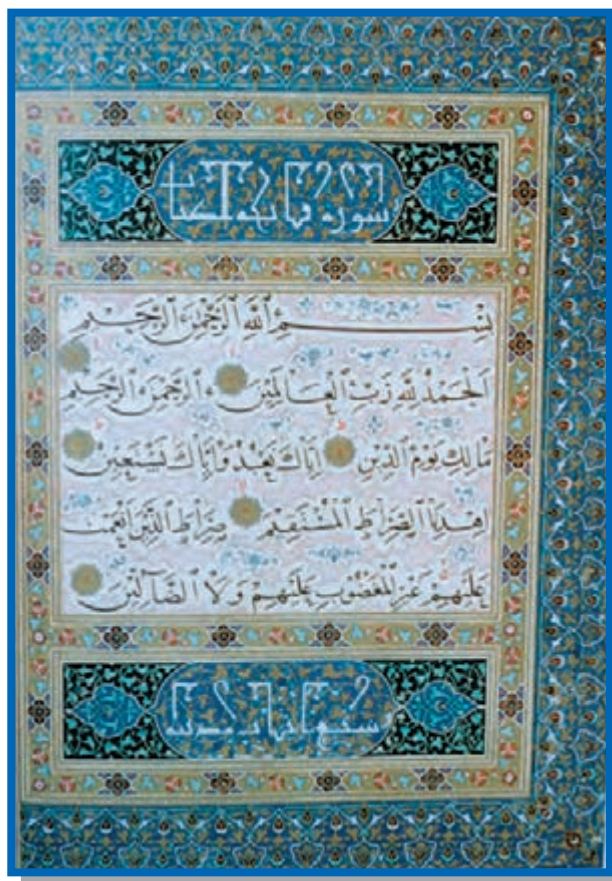 سورة فاتحة الكتاب
بِسْمِ ٱللَّهِ ٱلرَّحْمٰنِ ٱلرَّحِيمِ
اَلْحَمْدُ لِلّٰهِ رَبِّ ٱلْعَالَمِينَ ٱلرَّحْمٰنِ ٱلرَّحِيمِ
مَالِكِ يَوْمِ ٱلدِّينِ اِيَّاكَ نَعْبُدُ وَاِيَّاكَ نَسْتَعِينُ
اِهْدِنَا ٱلصِّرَاطَ ٱلْمُسْتَقِيمَ صِرَاطَ ٱلَّذِينَ اَنْعَمْتَ
عَلَيْهِمْ غَيْرِ ٱلْمَغْضُوبِ عَلَيْهِمْ وَلَا ٱلضَّالِّينَ
سبع آيات